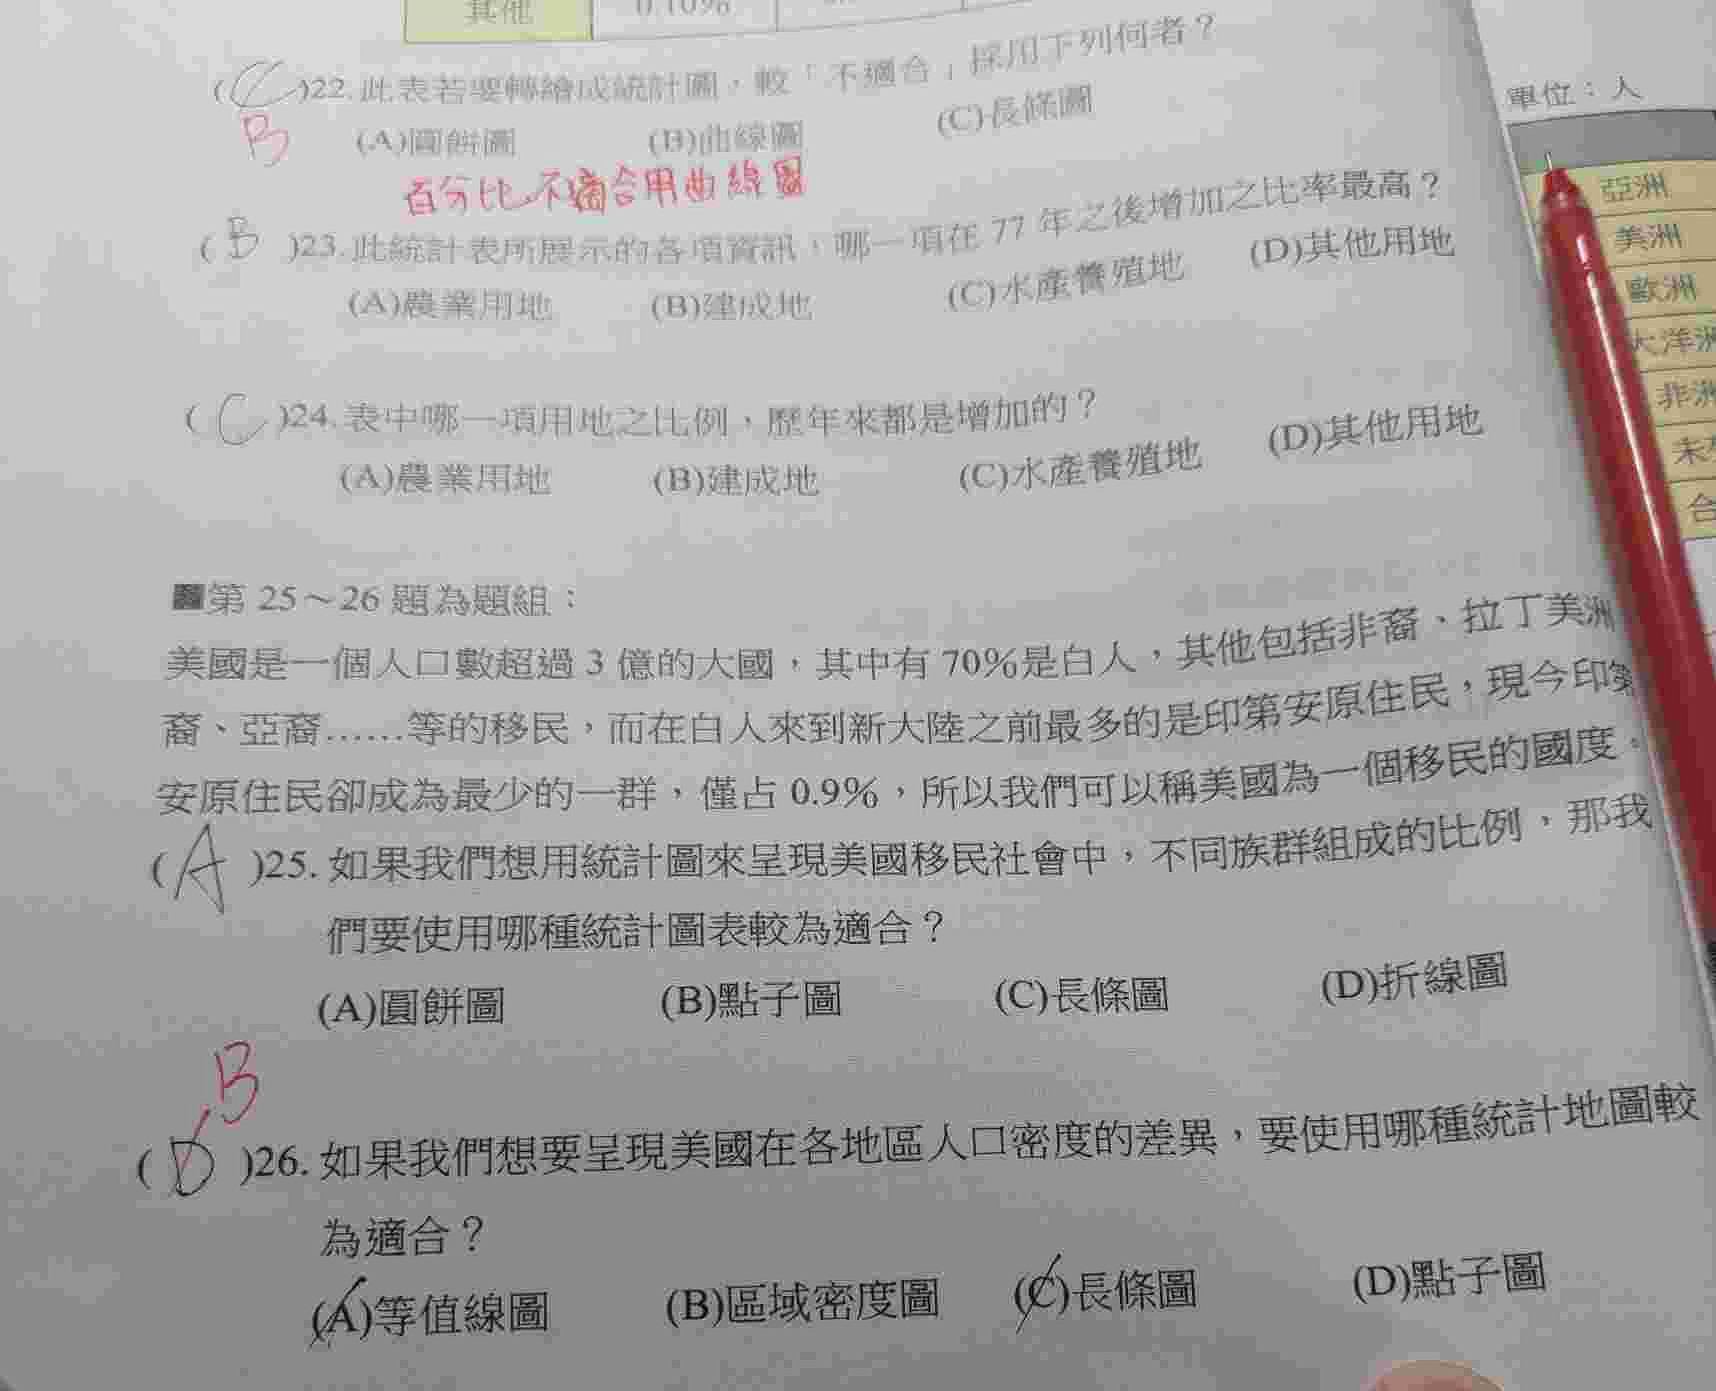 其他 0.10%
(C)22.此表若要轉繪成統計圖，較「不適合」採用下列何者？
B (A)圓餅圖 (B)曲線圖 (C)長條圖
百分比不適合用曲線圖
(B)23.此統計表所展示的各項資訊，哪一項在 77 年之後增加之比率最高？
(A)農業用地 (B)建成地 (C)水產養殖地 (D)其他用地
(C)24.表中哪一項用地之比例，歷年來都是增加的？
(A)農業用地 (B)建成地 (C)水產養殖地 (D)其他用地
■第 25～26 題為題組：
美國是一個人口數超過 3 億的大國，其中有 70%是白人，其他包括非裔、拉丁美洲
裔、亞裔……等的移民，而在白人來到新大陸之前最多的是印第安原住民，現今印第
安原住民卻成為最少的一群，僅占 0.9%，所以我們可以稱美國為一個移民的國度。
(A)25. 如果我們想用統計圖來呈現美國移民社會中，不同族群組成的比例，那我
們要使用哪種統計圖表較為適合？
(A)圓餅圖 (B)點子圖 (C)長條圖 (D)折線圖
B
(D)26. 如果我們想要呈現美國在各地區人口密度的差異，要使用哪種統計地圖較
為適合？
(A)等值線圖 (B)區域密度圖 (C)長條圖 (D)點子圖
單位：人
亞洲
美洲
歐洲
大洋洲
非洲
未
合